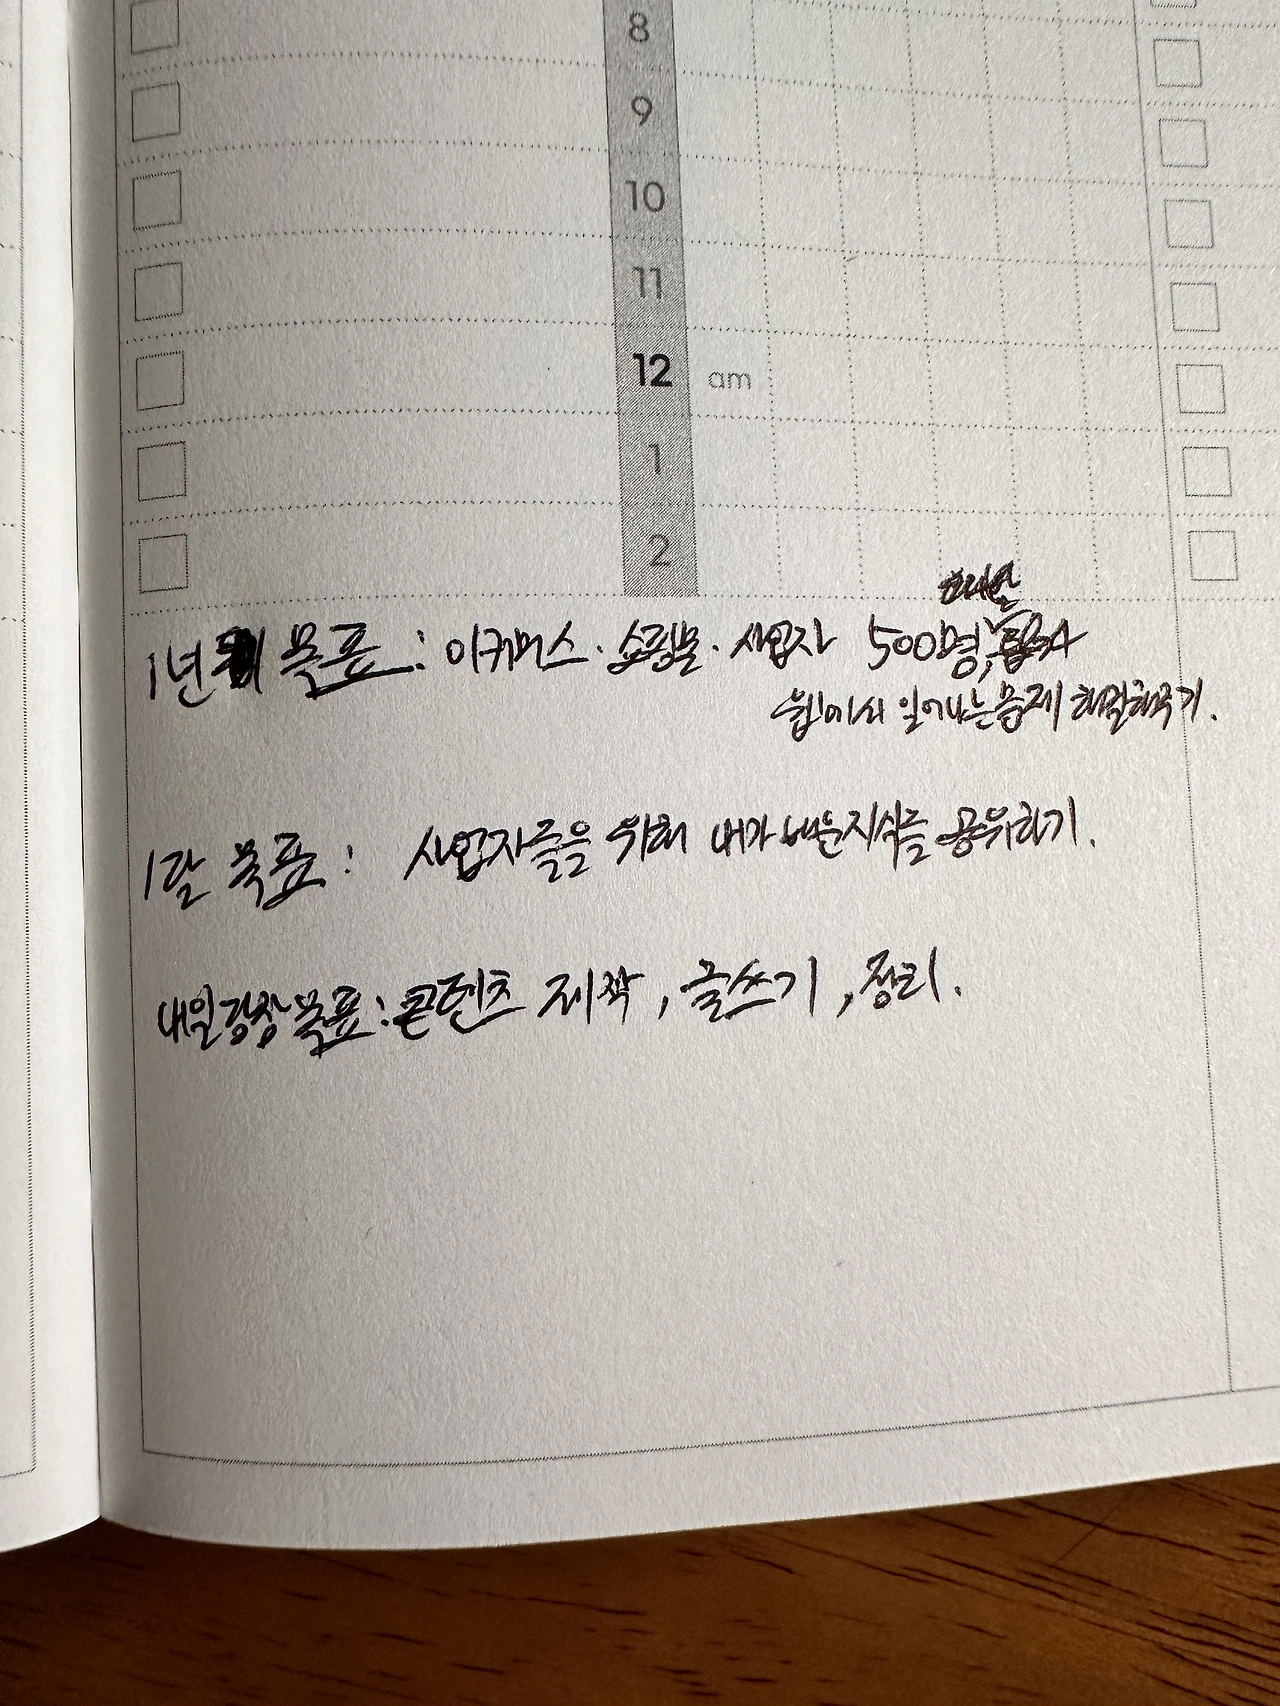 8
9
10
11
12 am
1
2
1년 목표 : 이커머스 · 쇼핑몰 · 사업자 500명,
웹에서 일어나는 문제 해결해주기.
1달 목표 : 사업자들을 위해 내가 배운 지식을 공유하기.
내일 당장 목표 : 콘텐츠 제작, 글쓰기, 정리.